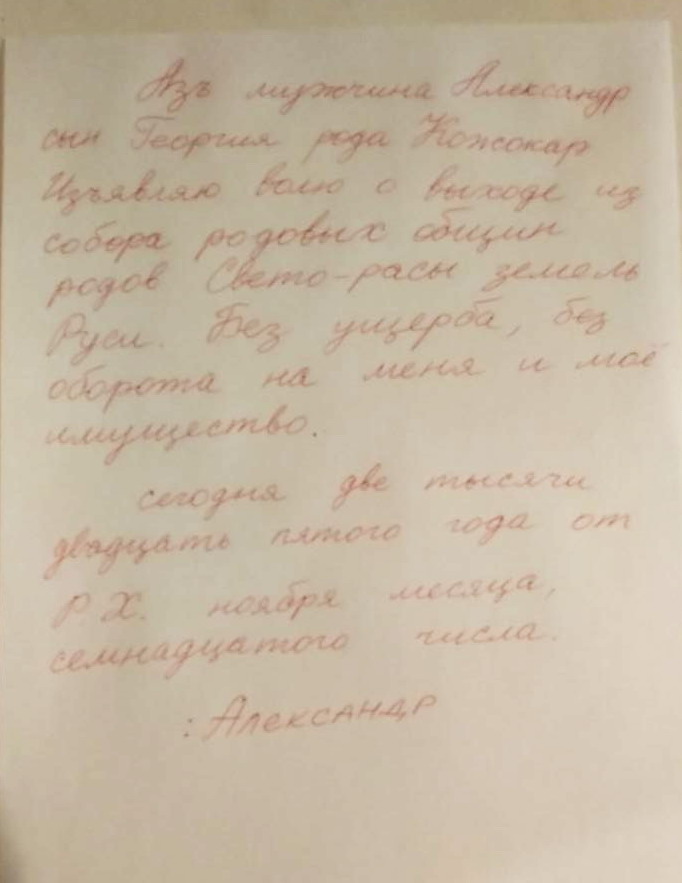 Азъ мужчина Александр
сын Георгия рода Кожокар
Изъявляю волю о выходе из
собора родовых общин
родов Свето-расы земель
Руси. Без ущерба, без
оборота на меня и моё
имущество.
сегодня две тысячи
двадцать пятого года от
Р.Х. ноября месяца,
семнадцатого числа.
: Александр